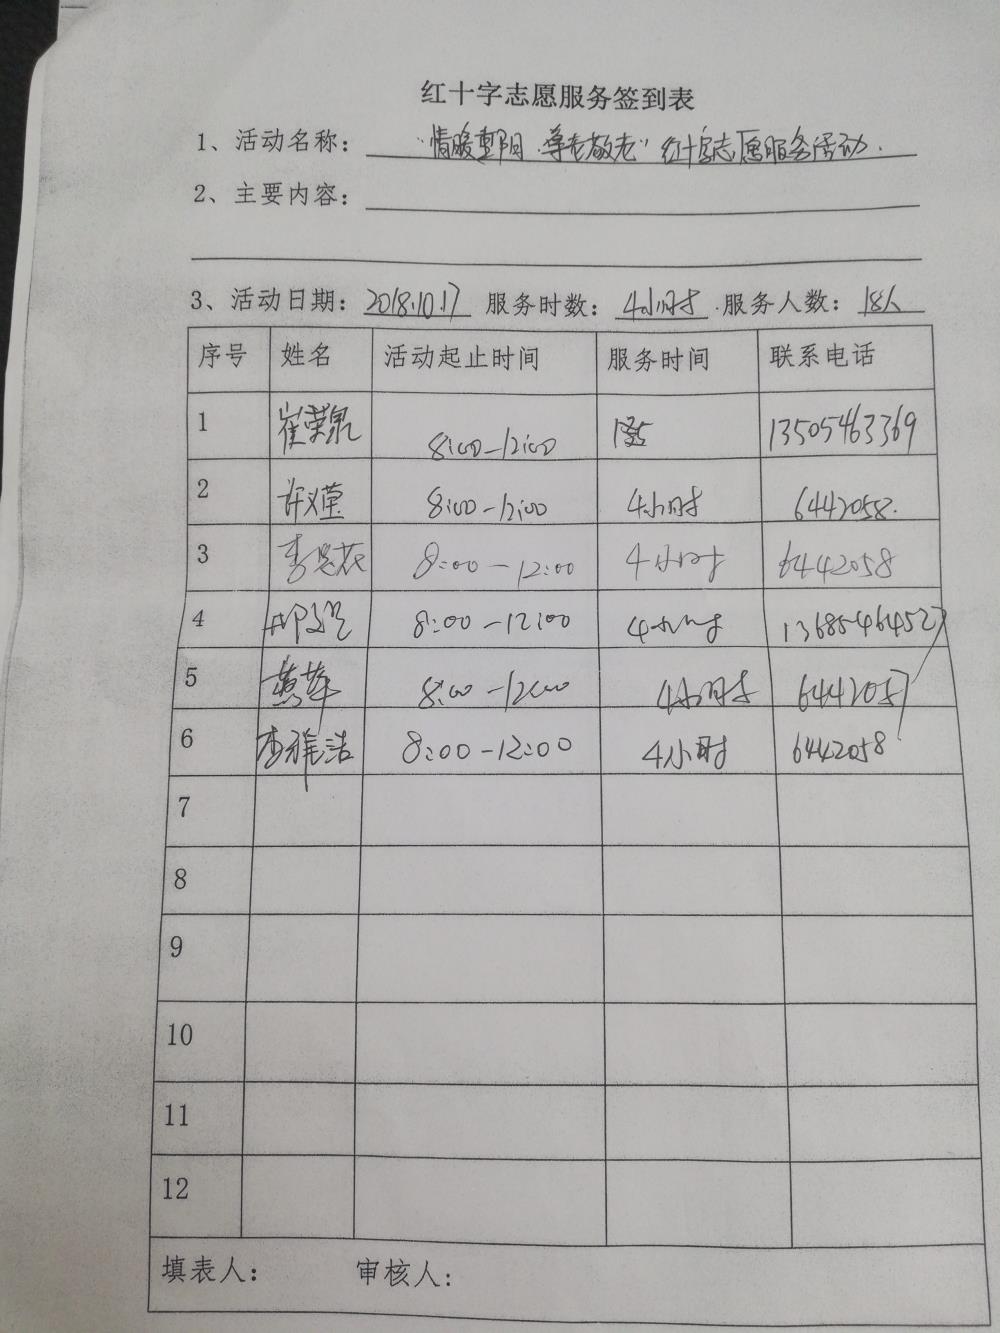 红十字志愿服务签到表
1、活动名称：“情暖重阳·尊老敬老”红十字志愿服务活动.
2、主要内容：
3、活动日期：2018.10.17 服务时数：4小时.服务人数：18人
序号 姓名 活动起止时间 服务时间 联系电话
1 崔荣泉 8:00-12:00 13505463369
2 8:00-12:00 4小时 6442058.
3 8:00-12:00 4小时 6442058
4 8:00-12:00 4小时 13685464527
5 8:00-12:00 4小时 6442057
6 李雅洁 8:00-12:00 4小时 6442058
7
8
9
10
11
12
填表人： 审核人：